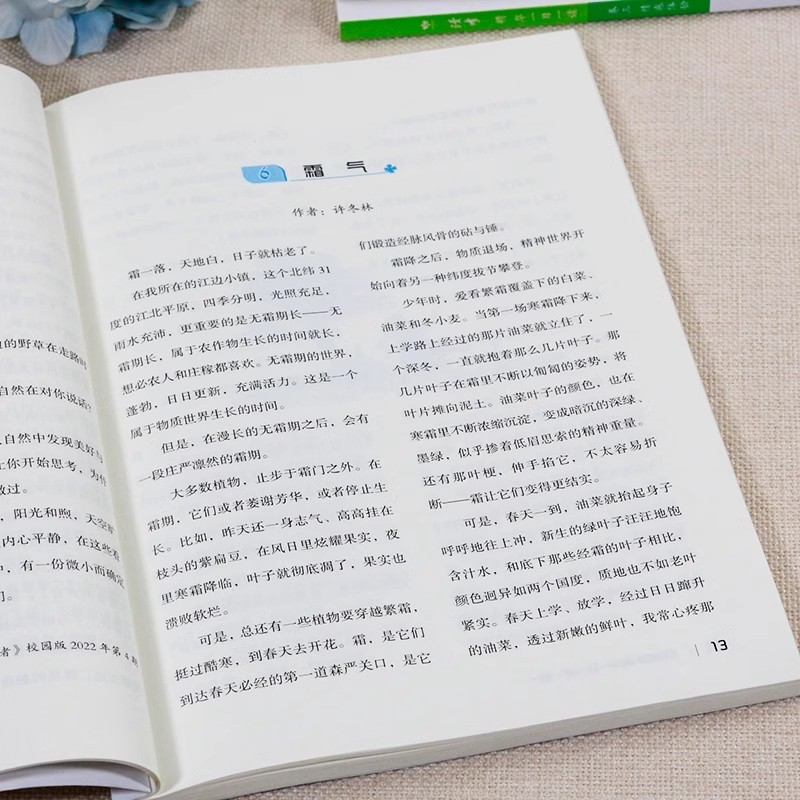 精华一日一读
6 霜气
作者：许冬林
霜一落，天地白，日子就枯老了。
在我所在的江边小镇，这个北纬31
度的江北平原，四季分明，光照充足，
雨水充沛，更重要的是无霜期长——无
霜期长，属于农作物生长的时间就长，
想必农人和庄稼都喜欢。无霜期的世界，
蓬勃，日日更新，充满活力。这是一个
属于物质世界生长的时间。
但是，在漫长的无霜期之后，会有
一段庄严凛然的霜期。
大多数植物，止步于霜门之外。在
霜期，它们或者萎谢芳华，或者停止生
长。比如，昨天还一身志气、高高挂在
枝头的紫扁豆，在风日里炫耀果实，夜
里寒霜降临，叶子就彻底凋了，果实也
溃败软烂。
可是，总还有一些植物要穿越繁霜，
挺过酷寒，到春天去开花。霜，是它们
到达春天必经的第一道森严关口，是它
们锻造经脉风骨的砧与锤。
霜降之后，物质退场，精神世界开
始向着另一种纬度拔节攀登。
少年时，爱看繁霜覆盖下的白菜、
油菜和冬小麦。当第一场寒霜降下来，
上学路上经过的那片油菜就立住了，一
个深冬，一直就抱着那么几片叶子。那
几片叶子在霜里不断以匍匐的姿势，将
叶片摊向泥土。油菜叶子的颜色，也在
寒霜里不断浓缩沉淀，变成暗沉的深绿、
墨绿，似乎掺着低眉思索的精神重量。
还有那叶梗，伸手掐它，不太容易折
断——霜让它们变得更结实。
可是，春天一到，油菜就抬起身子
呼呼地往上冲，新生的绿叶子汪汪地饱
含汁水，和底下那些经霜的叶子相比，
颜色迥异如两个国度，质地也不如老叶
紧实。春天上学、放学，经过日日蹿升
的油菜，透过新嫩的鲜叶，我常心疼那
13
的野草在走路时
自然在对你说话？
自然中发现美好与
让你开始思考，为什
做过。
，阳光和煦，天空
内心平静，在这些看
中，有一份微小而确定
们。
者》校园版2022年第4期